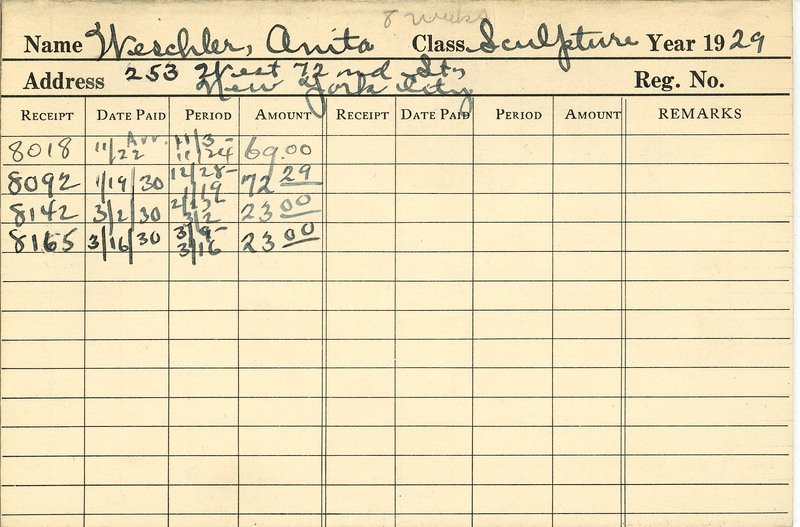 8 weeks
Name Weschler, Anita Class Sculpture Year 1929
Address 253 West 72nd St., Reg. No.
New York City
RECEIPT DATE PAID PERIOD AMOUNT RECEIPT DATE PAID PERIOD AMOUNT REMARKS
8018 11/22 Arr. 11/3- 11/24 69.00
8092 1/19/30 12/28- 1/19 72 29
8142 3/2/30 3/2 23 00
8165 3/16/30 3/9- 3/16 23 00